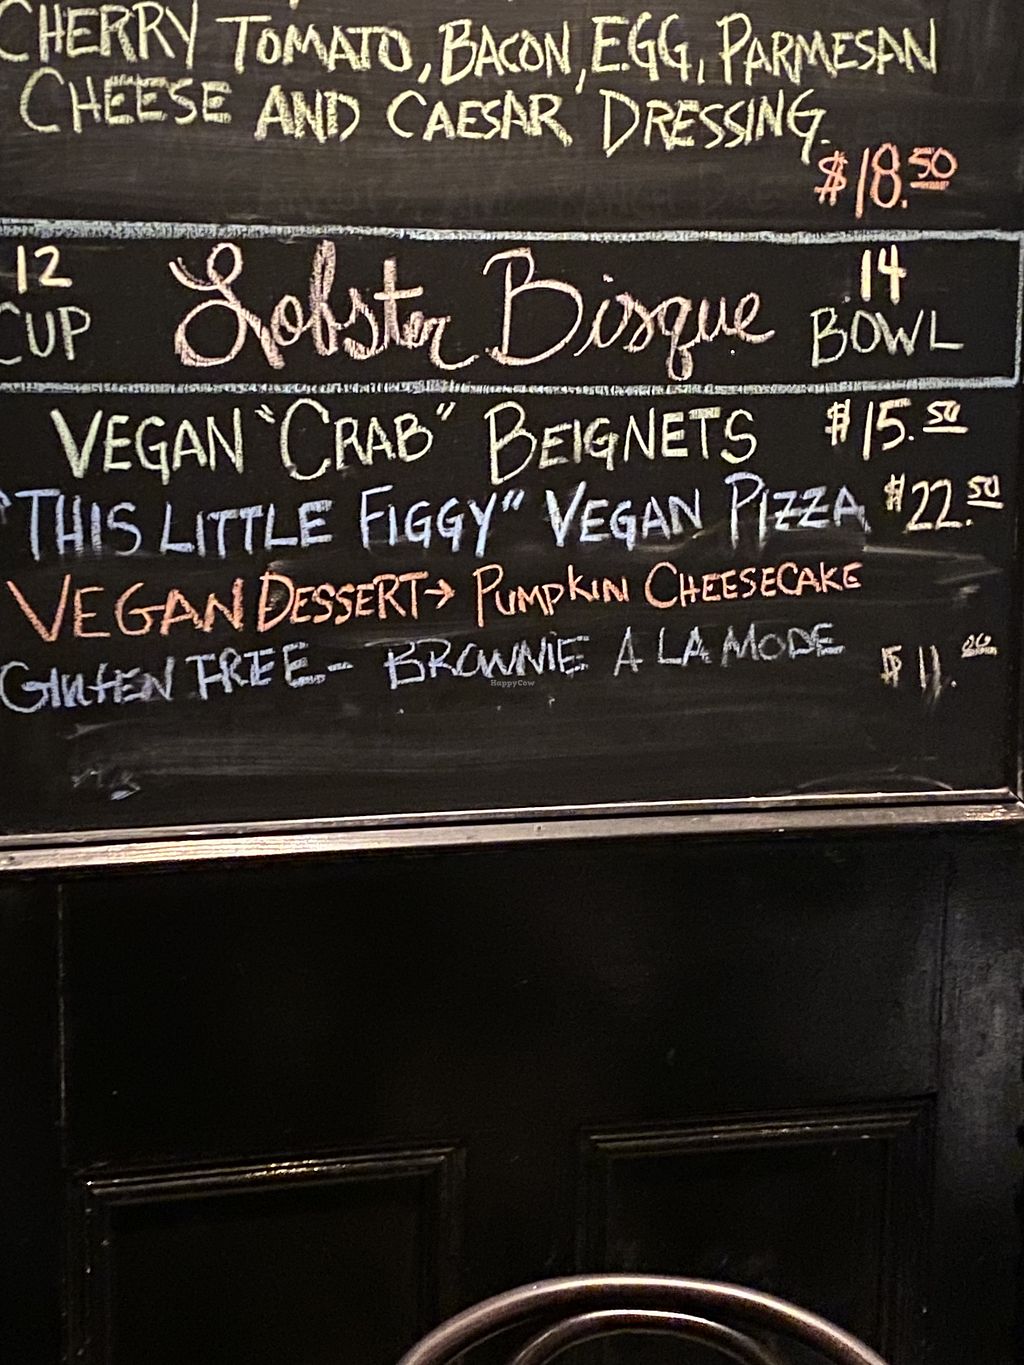 CHERRY TOMATO, BACON, EGG, PARMESAN
CHEESE AND CAESAR DRESSING.
$18.50
12 Lobster Bisque 14
CUP BOWL
VEGAN "CRAB" BEIGNETS $15.50
"THIS LITTLE FIGGY" VEGAN PIZZA $22.50
VEGAN DESSERT→ PUMPKIN CHEESECAKE
GLUTEN FREE - BROWNIE A LA MODE $11.
HappyCow